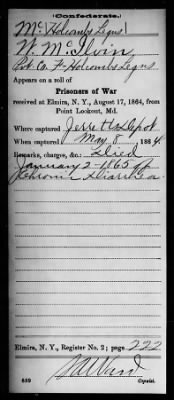 (Confederate.)
Mc | Holcombs Legns |
W. McIlvin,
Pvt. Co. F. Holcombs Legns
Appears on a roll of
Prisoners of War
received at Elmira, N. Y., August 17, 1864, from
Point Lookout, Md.
Where captured Jerrettsdepot
When captured May 8 1864.
Remarks, charges, &c.: Died
January 2-1865 of
Chronic Diarrhea
Elmira, N. Y., Register No. 2; page 222
639 Copyist.